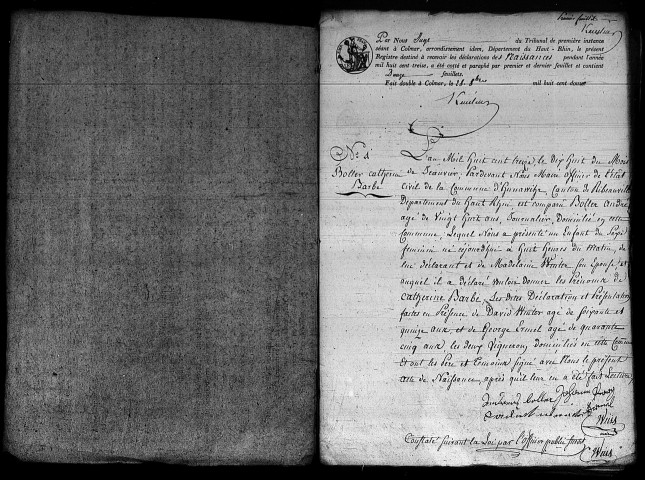 Premier feuillet
Par Nous Juge du Tribunal de première instance
séant à Colmar, arrondissement idem, Département du Haut-Rhin, le présent
Registre destiné à recevoir les déclarations des Naissances pendant l'année
mil huit cent treize, a été cotté et paraphé par premier et dernier feuillet et contient
Douze feuillets.
Fait double à Colmar, le 28 8bre mil huit cent douze
N.o 1
Boller catherine
Barbe
L'an Mil Huit cent treize, le Dix Huit du Mois
de Jeanvier, Pardevant Nous Maire officier de l'Etat
Civil de la Commune d'hunawihr, Canton de Ribeauvillé
Département du haut Rhin, est comparu Boller André
agé de Vingt Huit ans, Journalier, Domicilié en cette
Commune, Lequel Nous a présenté un Enfant de Sexe
feminin né cejourdhui à Huit Heures du Matin, de
lui déclarant et de Madelaine Winter son Epouse, et
auquel il a déclaré vouloir donner les Prénoms de
Catherine Barbe, Les dites Déclaration et Présentation
faites en Présence de David Winter agé de soixante et
quinze ans, et de George Ermel agé de quarante
cinq ans, les deux Vignerons, domiciliés en cette Commune
et ont les Père et Temoins signé avec Nous le présent
acte de Naissance, après qu'il leur en a été fait Lecture
Constaté suivant la Loi par l'officier public